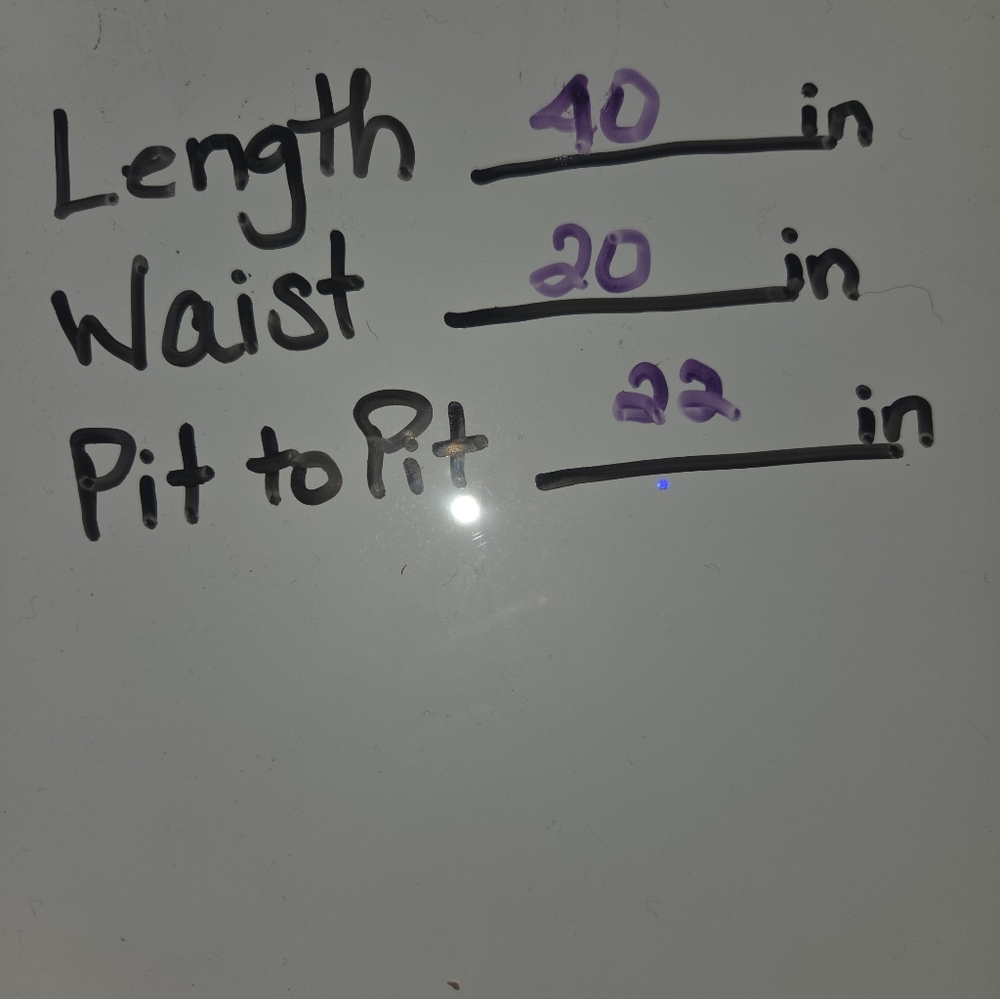 Length 40 in
Waist 20 in
Pit to Pit 22 in